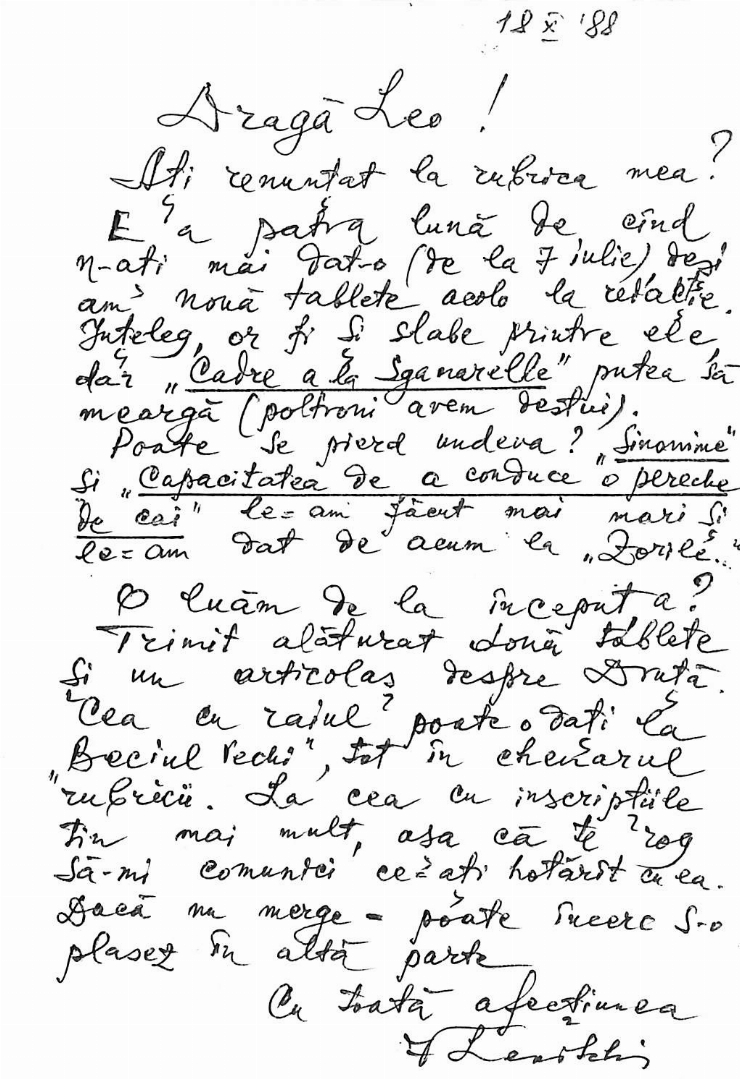 18 X '88
Dragă Leo!
Ați renunțat la rubrica mea?
E a patra lună de cînd
n-ați mai dat-o (de la 7 iulie) deși
am nouă tablete acolo la redacție.
Înțeleg, or fi și slabe printre ele,
dar „Cadre a la Sganarelle" putea să
meargă (poltroni avem destui).
Poate se pierd undeva? „Sinonime"
și „Capacitatea de a conduce o pereche
de cai" le-am făcut mai mari și
le-am dat de acum la „Zorile..."
O luăm de la început, a?
Trimit alăturat două tablete
și un articolaș despre Druță.
Cea cu raiul poate o dați la
„Beciul Vechi", tot în chenarul
rubricii. La cea cu inscripțiile
țin mai mult, așa că te rog
să-mi comunici ce-ați hotărît cu ea.
Dacă nu merge - poate încerc s-o
plasez în altă parte
Cu toată afecțiunea